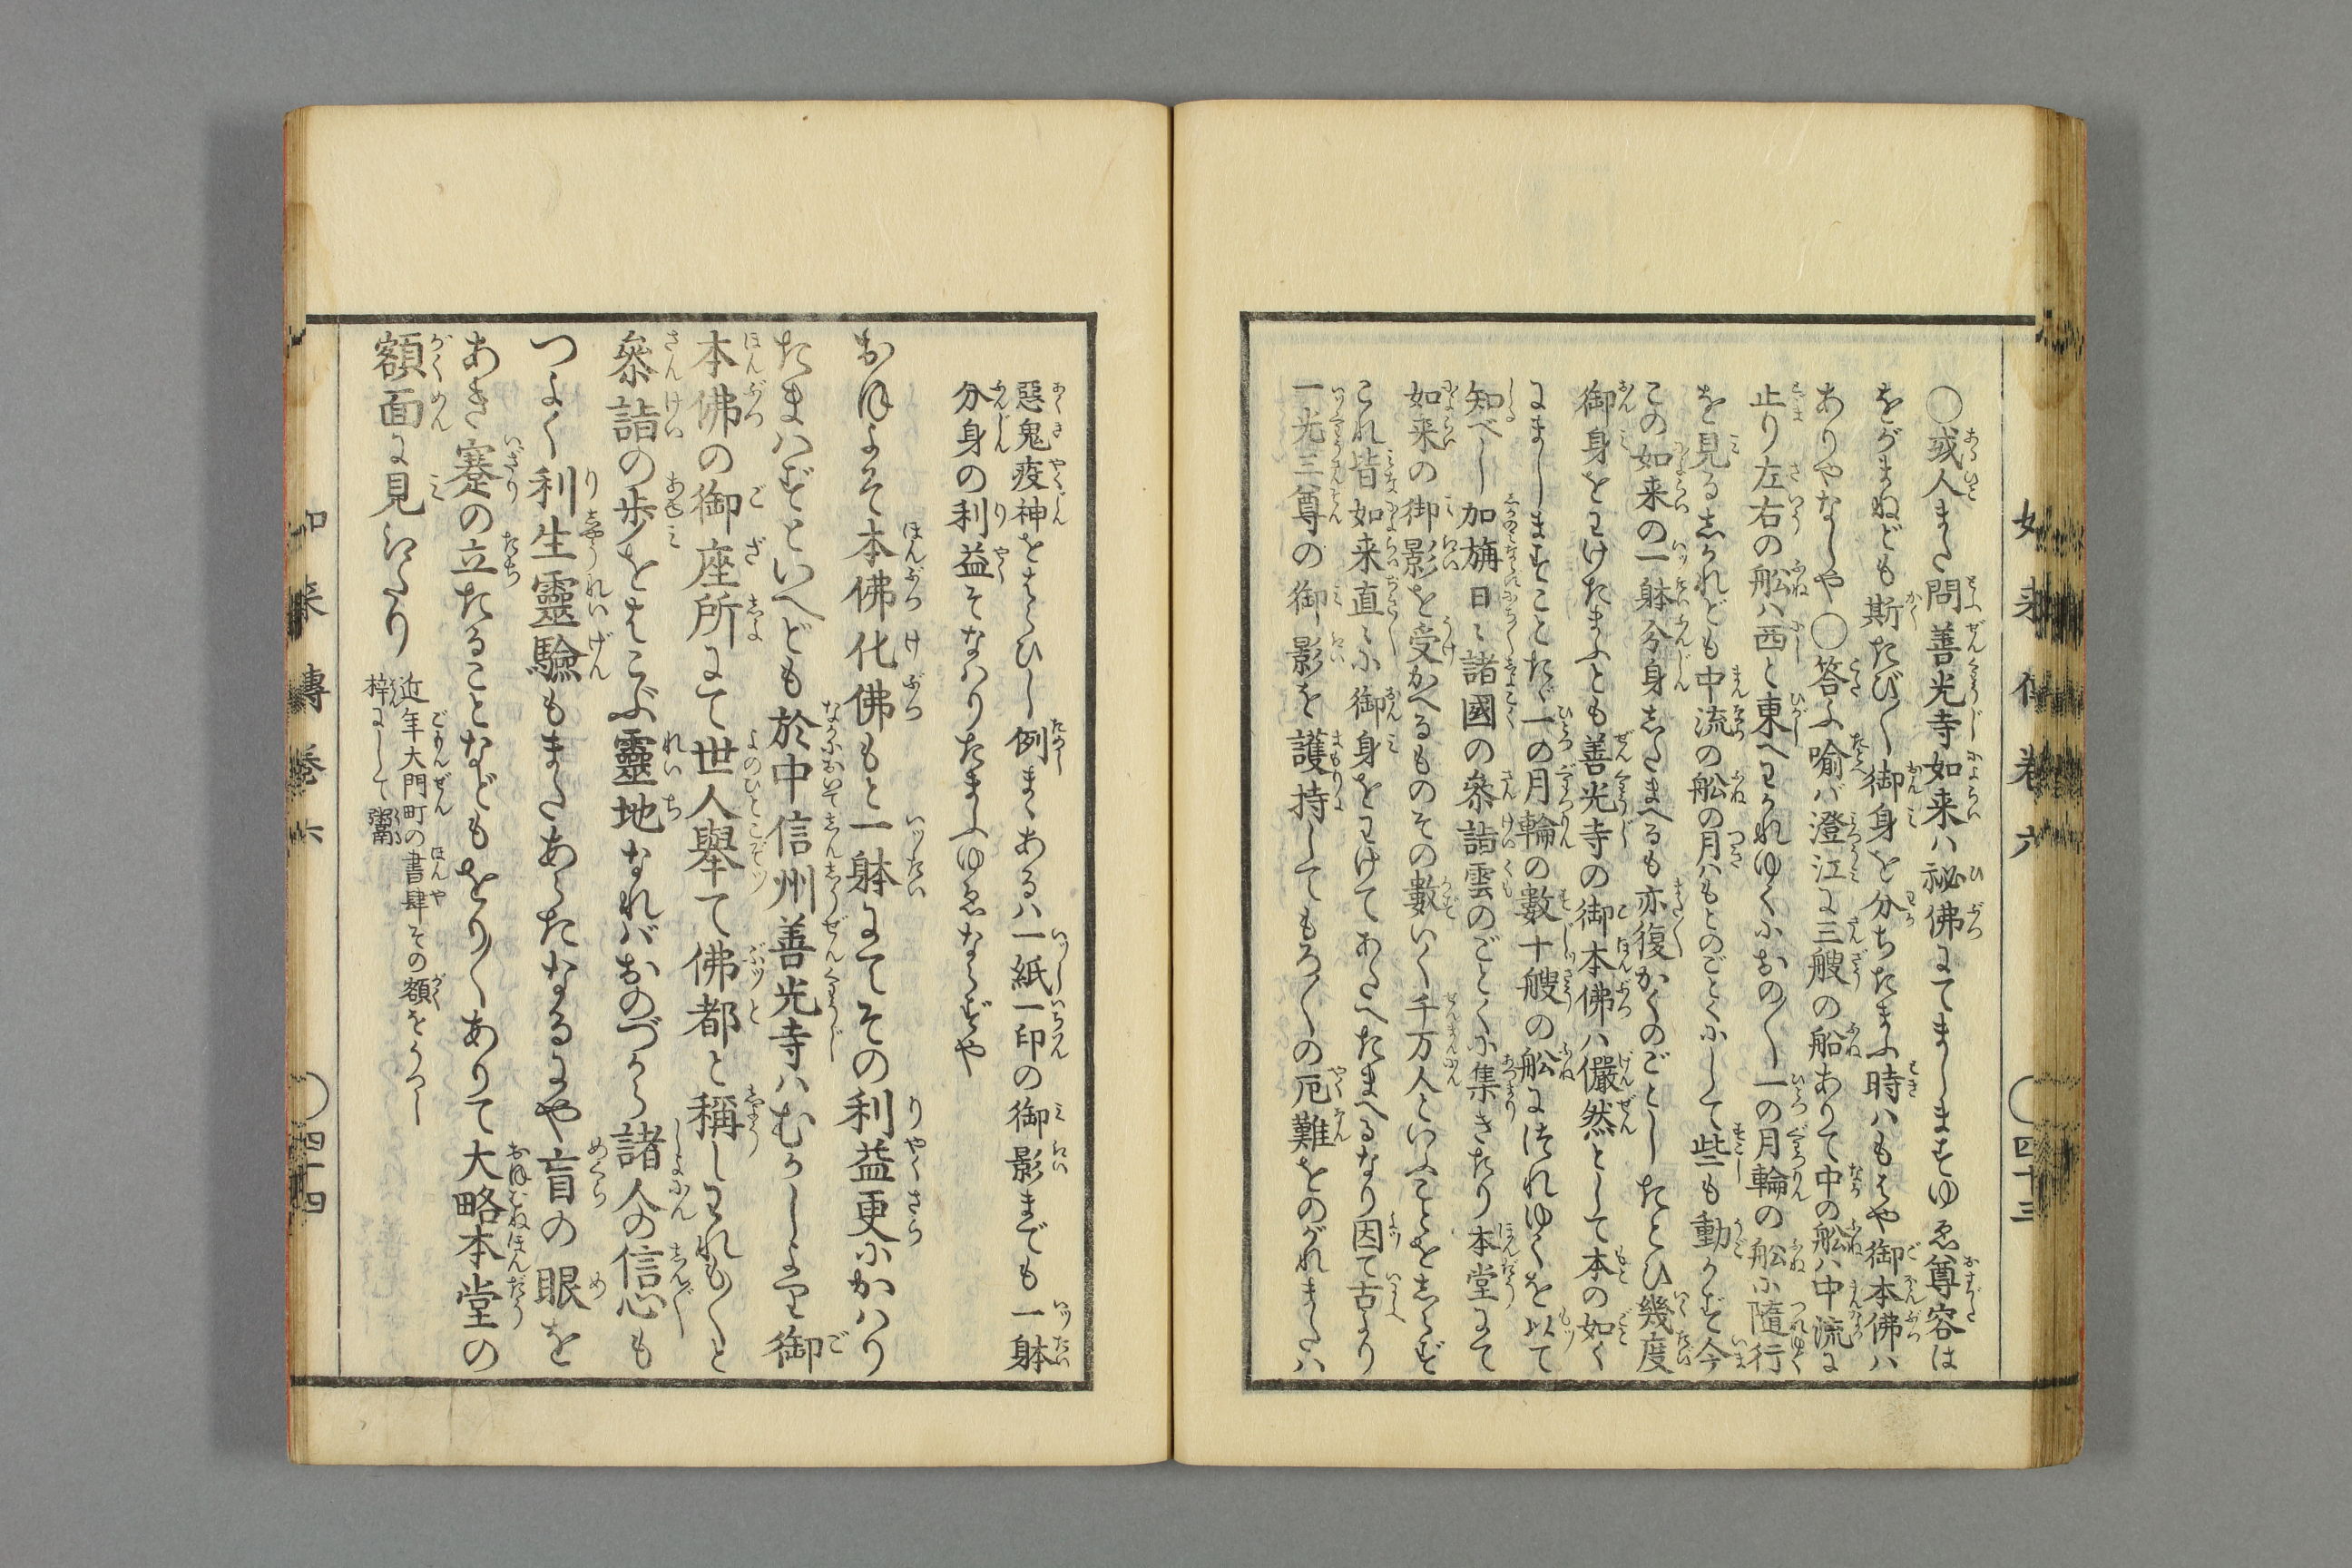 如来傳巻六
〇四十三
〇或人また問善光寺如来ハ祕佛にてましますゆゑ尊容は
をがまねども斯たび〱御身を分ちたまふ時ハもはや御本佛ハ
ありやなしや〇答ふ喩バ澄江に三艘の船ありて中の舩ハ中流に
止り左右の舩ハ西と東へわかれゆくにおの〱一の月輪の舩に隨行
を見るしかれども中流の舩の月ハもとのごとくにして些も動かず今
この如来の一躰分身したまへるも亦復かくのごとしたとひ幾度
御身をわけたまふとも善光寺の御本佛ハ儼然として本の如く
にましますことたゞ一の月輪の數十艘の舩につれゆくを以て
知べし加旃日〻諸國の叅詣雲のごとくに集きたり本堂にて
如来の御影を受かへるものその數いく千万人といふことをしらず
これ皆如来直〻に御身をわけてあたへたまへるなり因て古より
一光三尊の御影を護持してもろ〱の厄難をのがれまたハ
惡鬼疫神をはらひし例まゝあるハ一紙一印の御影までも一躰
分身の利益そなハりたまふゆゑならずや
おほよそ本佛化佛もと一躰にてその利益更にかハり
たまハずといへども於中信州善光寺ハむかしより御
本佛の御座所にて世人舉て佛都と稱しわれも〱と
叅詣の歩をはこぶ靈地なれバおのづから諸人の信心も
つよく利生靈驗もまたあらたなるにや盲の眼を
あき蹇の立たることなどもをり〱ありて大略本堂の
額面に見えたり
近年大門町の書肆その額をうつし
梓にして鬻
如来傳巻六
〇四十四